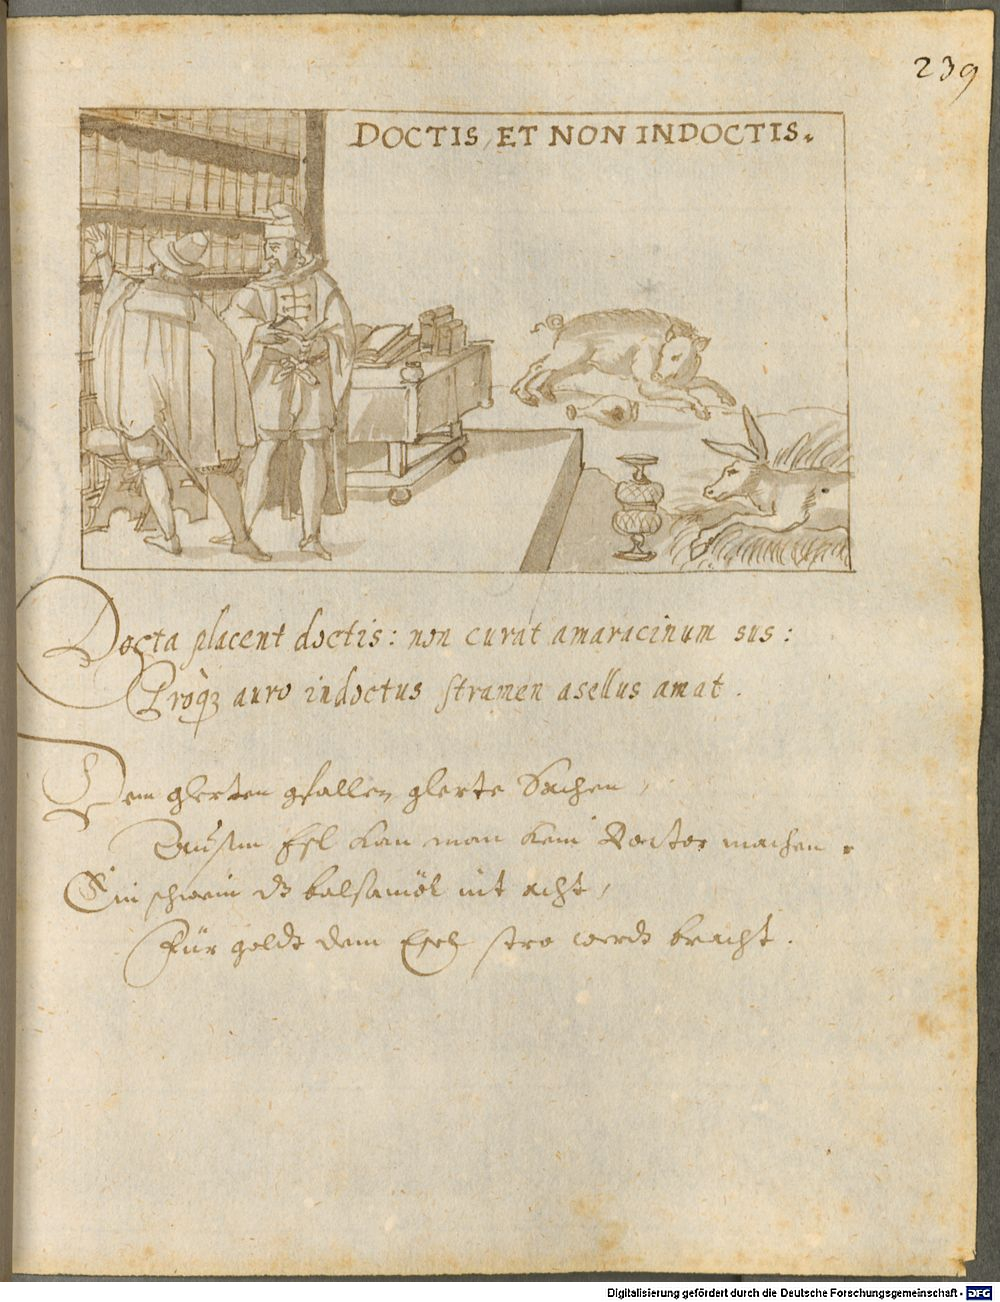 239
DOCTIS, ET NON INDOCTIS.
Docta placent doctis: non curat amaracinum sus:
Proq́ꝫ auro indoctus stramen asellus amat.
Dem glerten gfallen glerte Sachen,
Aussm Esl kan man kein Doctor machen.
Ein schwein dz balsamöl nit acht,
Für goldt dem Esel stro werdt bracht.
Digitalisierung gefördert durch die Deutsche Forschungsgemeinschaft - DFG